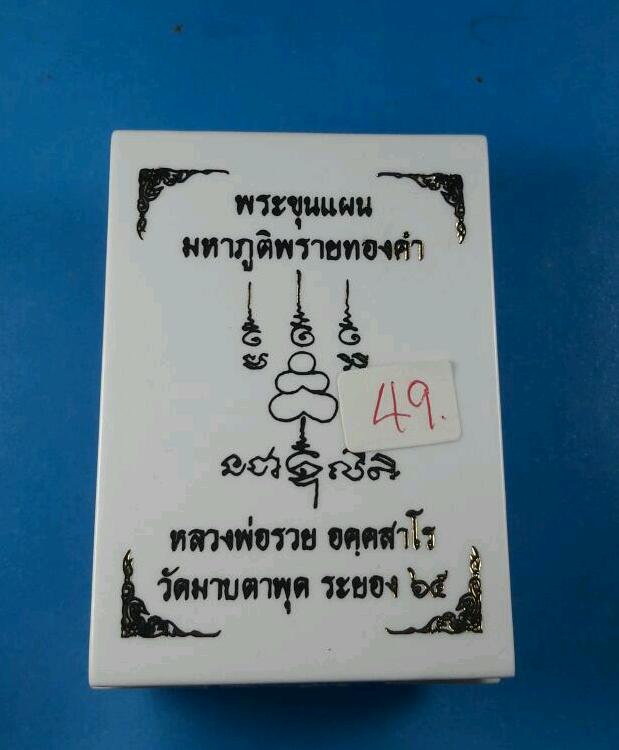 พระขุนแผน
มหาภูติพรายทองคำ
49.
หลวงพ่อรวย อคฺคสาโร
วัดมาบตาพุด ระยอง ๖๕